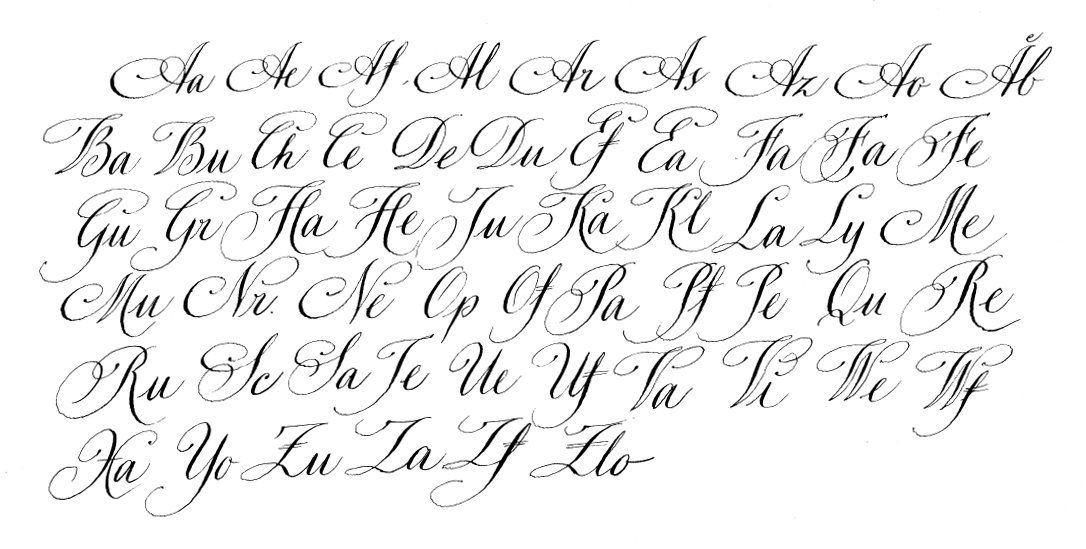 Aa Ae Af Al Ar As Az Ao Ab
Ba Bu Ch Ce De Du Ef Ea Fa Fa Fe
Gu Gr Ha He Ju Ka Kl La Ly Me
Mu Nr. Ne Op Of Pa Pf Pe Qu Re
Ru Sc Sa Te Ue Uf Va Vi We Wf
Xa Yo Zu Za Zf Zlo